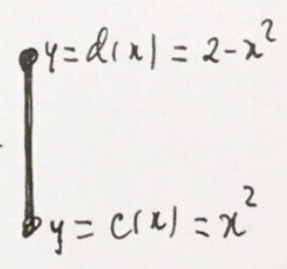 y = d(x) = 2 - x²
y = c(x) = x²